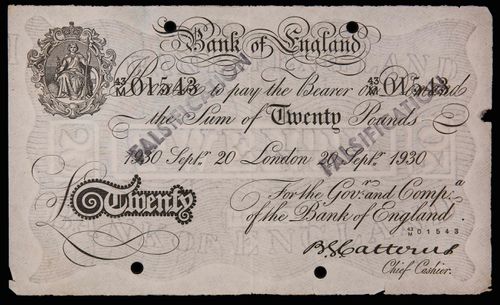 Bank of England
43/M 01543 43/M 01543
I Promise to pay the Bearer on Demand
the Sum of Twenty Pounds
FALSIFICATION FALSIFICATION
1930 Septr. 20 London 20 Septr. 1930
For the Govr. and Compa.
£ Twenty of the Bank of England.
43/M 01543
B.G. Catterns
Chief Cashier.